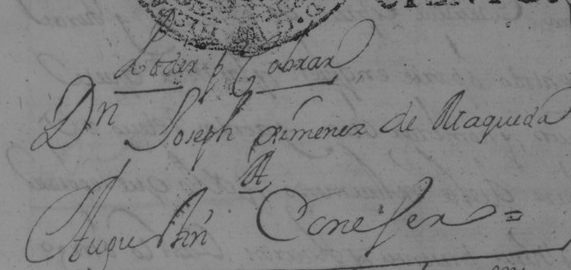 Poder p.ª Cobrar
Dn Joseph ximenez de Maqueda
A
Augustin Coneser =